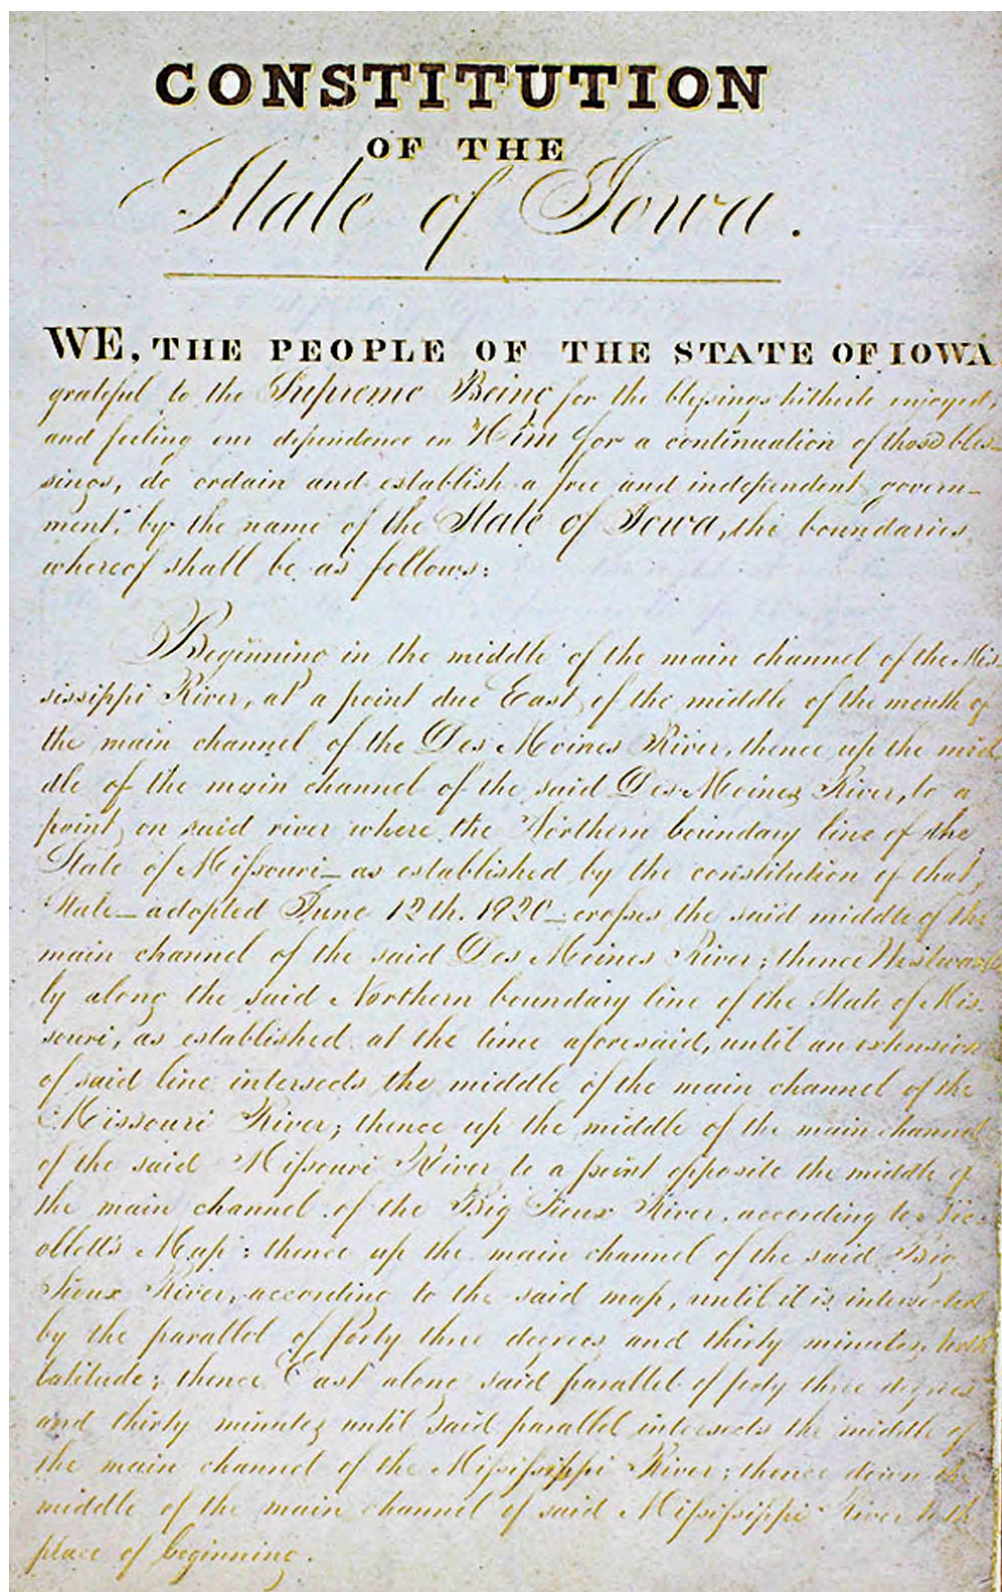 CONSTITUTION
OF THE
State of Iowa.
WE, THE PEOPLE OF THE STATE OF IOWA
grateful to the Supreme Being for the blessings hitherto enjoyed,
and feeling our dependence on Him for a continuation of those bles-
sings, do ordain and establish a free and independent govern-
ment, by the name of the State of Iowa, the boundaries
whereof shall be as follows:
Beginning in the middle of the main channel of the Mis-
sissippi River, at a point due East of the middle of the mouth of
the main channel of the Des Moines River, thence up the mid
dle of the main channel of the said Des Moines River, to a
point on said river where the Northern boundary line of the
State of Missouri—as established by the constitution of that
State—adopted June 12th. 1820—crosses the said middle of the
main channel of the said Des Moines River; thence Westward
ly along the said Northern boundary line of the State of Mis-
souri, as established at the time aforesaid, until an extension
of said line intersects the middle of the main channel of the
Missouri River; thence up the middle of the main channel
of the said Missouri River to a point opposite the middle of
the main channel of the Big Sioux River, according to Nic-
ollett's Map: thence up the main channel of the said Big
Sioux River, according to the said map, until it is intersected
by the parallel of forty three degrees and thirty minutes north
latitude; thence East along said parallel of forty three degrees
and thirty minutes until said parallel intersects the middle of
the main channel of the Mississippi River; thence down the
middle of the main channel of said Mississippi River to the
place of beginning.